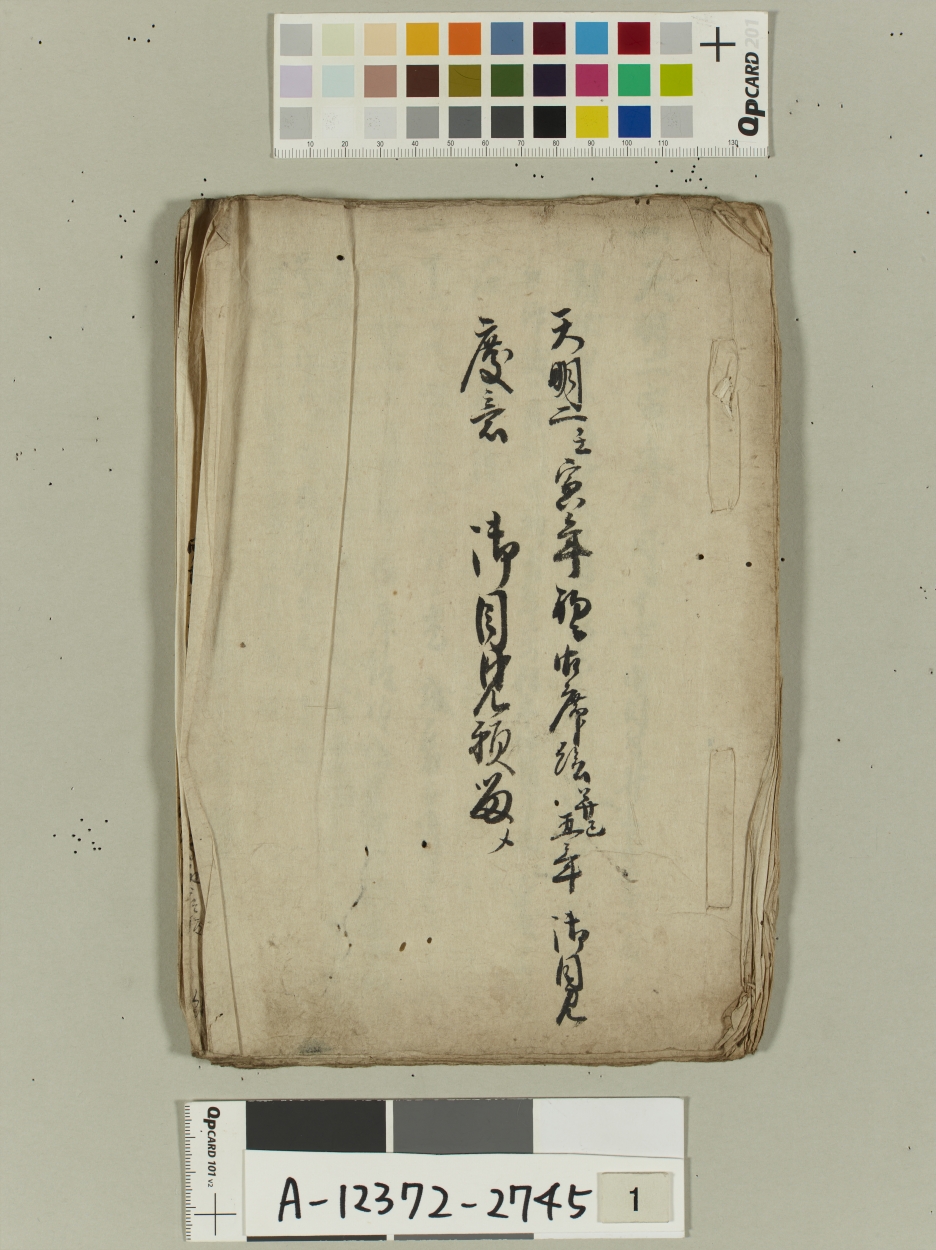 QPCARD 201
10 20 30 40 50 60 70 80 90 100 110 130
天明二壬寅年 御席絵 五年 御目見
慶意 御目見願留
QPCARD 101 v2
A-12372-2745
1